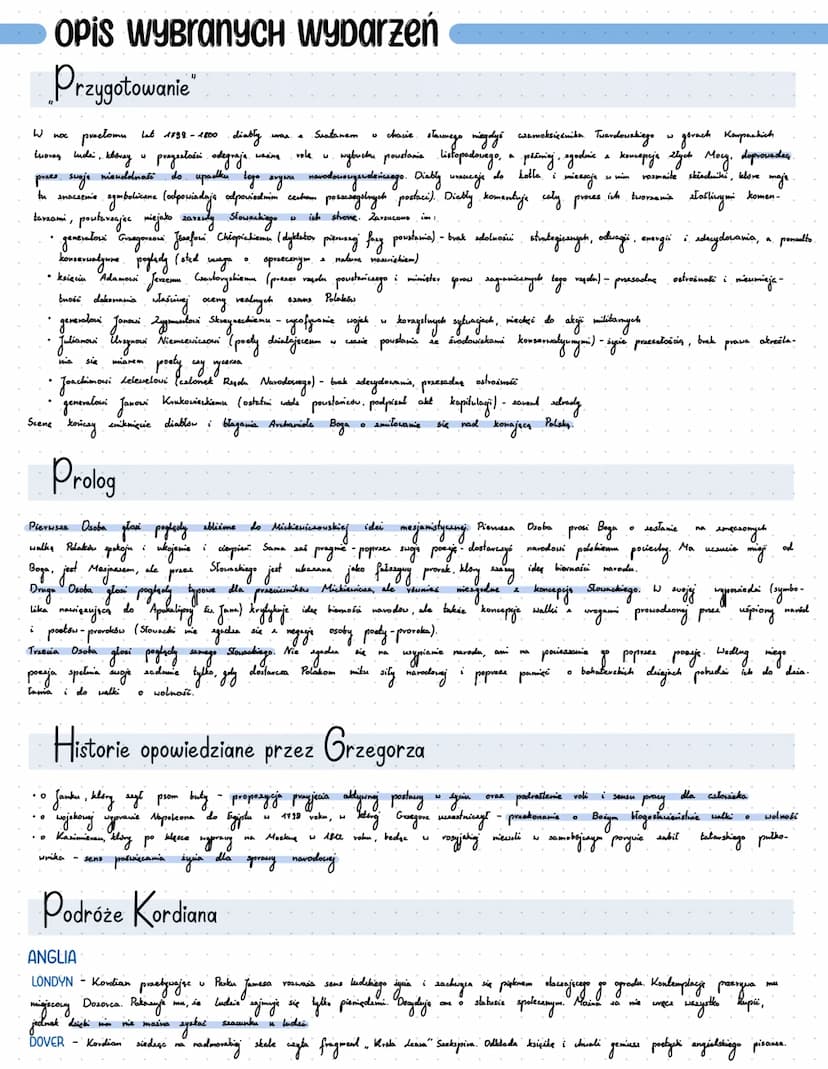 OPIS WYBRANYCH WYDARZEŃ
„Przygotowanie"
W noc przełomu lat 1799-1800 diabły wraz z Szatanem w chacie sławnego niegdyś czarnoksiężnika Twardowskiego w górach Karpackich
tworzą ludzi, którzy w przyszłości odegrają ważną rolę w wybuchu powstania listopadowego, a później, zgodnie z koncepcją złych Mocy, doprowadzą
przez swoją nieudolność do upadku tego zrywu narodowowyzwoleńczego. Diabły wrzucają do kotła i mieszają w nim rozmaite składniki, które mają
tu znaczenie symboliczne (odpowiadają odpowiednim cechom poszczególnych postaci). Diabły komentują cały proces ich tworzenia złośliwymi komen-
tarzami, powtarzając niejako zarzuty Słowackiego w ich stronę. Zarzucono im:
• generałowi Grzegorzowi Józefowi Chłopickiemu (dyktator pierwszej fazy powstania) - brak zdolności strategicznych, odwagi, energii i zdecydowania, a ponadto
konserwatywne poglądy (stąd uwaga o sprzecznym z naturą nazwiskiem)
• księciu Adamowi Jerzemu Czartoryskiemu (prezes rządu powstańczego i minister spraw zagranicznych tego rządu) - przesadną ostrożność i nieumieję-
tność dokonania właściwej oceny realnych szans Polaków
• generałowi Janowi Zygmuntowi Skrzyneckiemu - wycofywanie wojsk w korzystnych sytuacjach, niechęć do akcji militarnych
• Julianowi Ursynowi Niemcewiczowi (poety działającemu w czasie powstania ze środowiskami konserwatywnymi) - życie przeszłością, brak prawa określa-
nia się mianem poety czy rycerza
• Joachimowi Lelewelowi (członek Rządu Narodowego) - brak zdecydowania, przesadną ostrożność
• generałowi Janowi Krukowieckiemu (ostatni wódz powstańców, podpisał akt kapitulacji) - zarzut zdrady
Scenę kończy zniknięcie diabłów i błagania Archanioła Boga o zmiłowanie się nad konającą Polską.
Prolog
Pierwsza Osoba głosi poglądy zbliżone do Mickiewiczowskiej idei mesjanistycznej. Pierwsza Osoba prosi Boga o zesłanie na zmęczonych
walką Polaków spokoju i ukojenie w cierpień. Sama zaś pragnie - poprzez swoją poezję - dostarczyć narodowi polskiemu pociechy. Ma uczucie misji od
Boga, jest Mesjaszem, ale przez Słowackiego jest ukazana jako fałszywy prorok, który szerzy ideę bierności narodu.
Druga Osoba głosi poglądy typowe dla przeciwników Mickiewicza, ale również niezgodne z koncepcją Słowackiego. W swojej wypowiedzi (symbo-
lika nawiązująca do Apokalipsy św. Jana) krytykuje ideę bierności narodów, ale także koncepcję walki z wrogami prowadzonej przez uśpiony naród
i poetów-proroków (Słowacki nie zgadza się z negacją osoby poety-proroka).
Trzecia Osoba głosi poglądy samego Słowackiego. Nie zgadza się na usypianie narodu, ani na pocieszanie go poprzez poezję. Według niego
poezja spełnia swoje zadanie tylko, gdy dostarcza Polakom mitu siły narodowej i poprzez pamięć o bohaterskich dziejach pobudzi ich do dzia-
łania i do walki o wolność.
Historie opowiedziane przez Grzegorza
• o Janku, który szył psom buty - propozycja przyjęcia aktywnej postawy w życiu oraz podkreślenie roli i sensu pracy dla człowieka
• o wojskowej wyprawie Napoleona do Egiptu w 1798 roku, w której Grzegorz uczestniczył - przekonanie o Bożym błogosławieństwie walki o wolność
• o Kazimierzu, który po klęsce wyprawy na Moskwę w 1812 roku, będąc w rosyjskiej niewoli w samobójczym porywie zabił tatarskiego pułko-
wnika - sens poświęcania życia dla sprawy narodowej
Podróże Kordiana
ANGLIA
LONDYN - Kordian przebywając w Parku Jamesa rozważa sens ludzkiego życia i zachwyca się pięknem otaczającego go ogrodu. Kontemplację przerywa mu
miejscowy Dozorca. Pokazuje mu, że ludzie zajmują się tylko pieniędzmi. Decydują one o statusie społecznym. Można za nie wręcz wszystko kupić,
jednak dzięki nim nie można zyskać szacunku u ludzi.
DOVER - Kordian siedząc na nadmorskiej skale czyta fragment „Króla Leara" Szekspira. Odkłada książkę i chwali geniusz poetycki angielskiego pisarza.